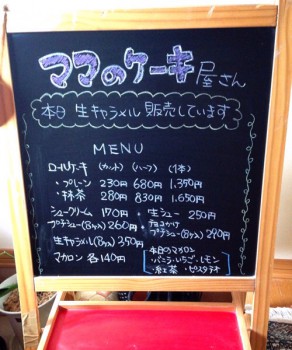 ママのケーキ屋さん
本日 生キャラメル 販売しています
MENU
ロールケーキ (カット) (ハーフ) (1本)
・プレーン 230円 680円 1,350円
・抹茶 280円 830円 1,650円
シュークリーム 170円 ・生シュー 250円
プチシュー(8ヶ入) 260円 ・チョコかけ
プチシュー(8ヶ入) 290円
生キャラメル(8ヶ入) 350円
マカロン 各140円
本日のマカロン
・バニラ・いちご・レモン
・紅茶・ピスタチオ